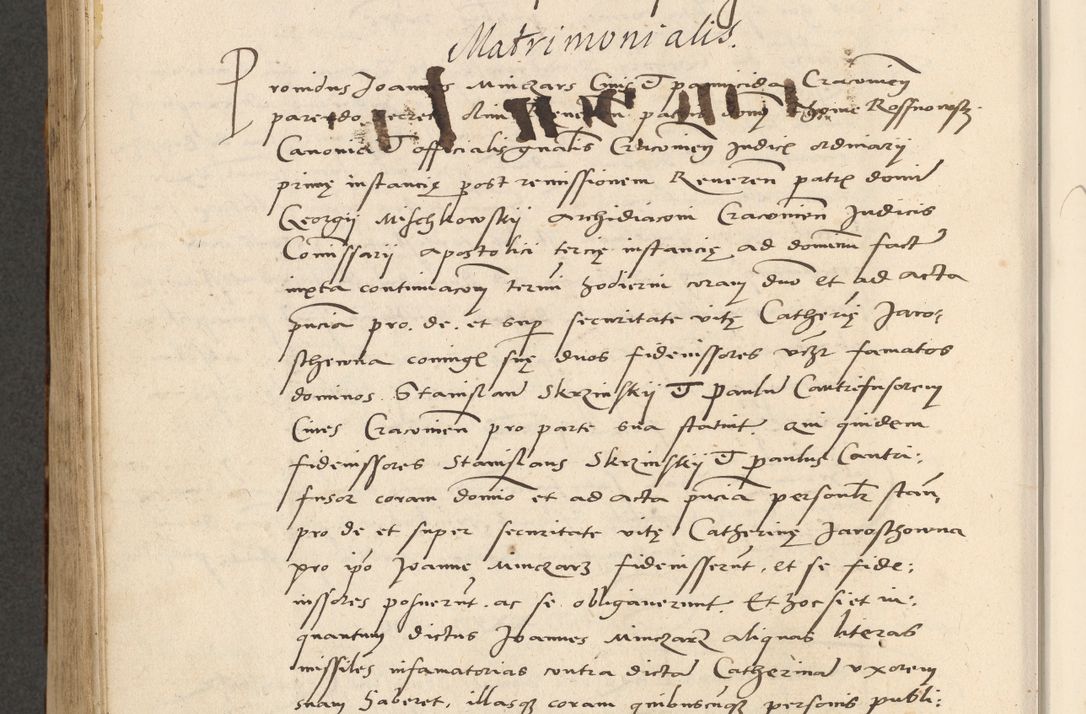 Matrimonialis.
Prouidus Joannes Minczars Ciuis et pannicida Cracouien
parendo decret olim Reueren patris domi Thome Rossnowsky
Canonici et officialis gnalis Cracouien Judicis ordinarij
prime instancie post remissionem Reueren patris domi
Georgij Mischkowskij Archidiaconi Cracouien Judicis
Comissarij apostolici tercię instancię ad dominum fact
iuxta continuacom termi hodierni coram dno et ad acta
pncia pro. de. et sup securitate vitę Catherię Jaro:
schewna coniugis suę duos fideiussores vczr famatos
dominos Stanislaum Skrzinskij et Paulum Cantrifusorem
Ciues Cracouien pro parte sua statuit. Qui quidem
fideiussores Stanislaus Skrzinskij et paulus Cantri:
fusor coram domino et ad acta pncia personlr stan,
pro de et super securitate vitę Catherinę Jaroschowna
pro ipo Joanne Minczarz fideiusserunt, et se fide:
iussores posuerunt. ac se obligauerunt. Et hoc si et in:
quantum dictus Joannes Minczarz aliquas literas
missiles infamatorias contra dictam Catherinam vxorem
suam haberet, illasque coram quibuscunque personis publi: